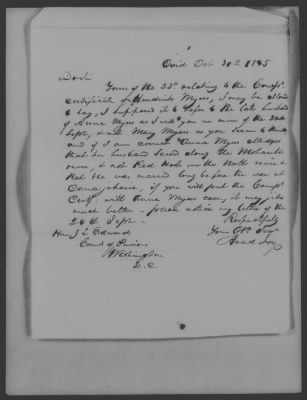 Ovid Oct 30th 1845
Dr Sir
Yours of the 23d relating to the Comps.
certificate of Hendrick Myers, I may be allowed
to say, I supposed it to refer to the late husband
of Anna Myers as I told you in mine of the 24th
Sept, & not Mary Myers as you seem to think
and if I am correct Anna Myers alledges
that her husband served along the Mohawk
river, & not Red Hook on the North river &
that she was married long before the war at
Canajoharie, if you will put the Comps.
Certf. with Anna Myers case, it may fit
much better - please notice my letter of the
24th Sept -
Respectfully
Your Obt Servt
Hon J L Edwards
Com of Pensions
Washington
D. C.